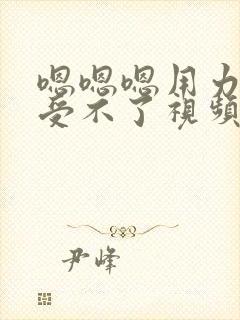 嗯嗯嗯用力
受不了視頻
尹峰